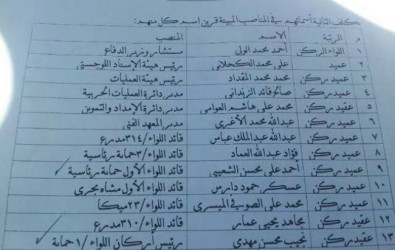 يكلف التالية أسمائهم في المناصب المبينة قرين اسم كل منهم:
م الرتبة الاسم المنصب
١ اللواء الركن أحمد محمد الولي مستشار وزير الدفاع
٢ عميد علي محمد الكحلاني رئيس هيئة الإسناد اللوجستي
٣ عميد ركن محمد محمد المقداد رئيس هيئة العمليات
٤ عميد ركن صالح قائد الزنداني مدير دائرة العمليات الحربية
٥ عقيد ركن محمد علي هاشم العوامي مدير دائرة الإمداد والتموين
٦ عميد ركن عبدالله محمد الأغبري مدير المعهد الفني
٧ عميد ركن عبدالله عبدالملك عباس قائد اللواء/٣١٤مدرع
٨ عميد ركن فؤاد عبدالله العماد قائد اللواء/٣حماية رئاسية
٩ عميد ركن أحمد علي محسن الشعيبي قائد اللواء الأول حماية رئاسية
١٠ عميد ركن عسكر حمود دارس قائد اللواء الأول مشاه بحري
١١ عميد ركن علي محمد الصوفي الميسري قائد اللواء/٢٣ميكا
١٢ عقيد ركن مجاهد يحيى عمار قائد اللواء/٣١٠مدرع
١٣ عقيد ركن نجيب محسن مهدي رئيس أركان اللواء/١ حماية